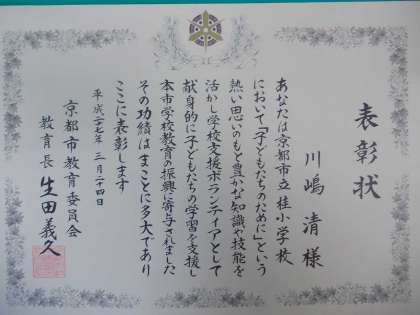 表彰状
川嶋 清 様
あなたは京都市立桂小学校
において「子どもたちのために」という
熱い思いのもと豊かな知識や技能を
活かし学校支援ボランティアとして
献身的に子どもたちの学習を支援し
本市学校教育の振興に寄与されました
その功績はまことに多大であり
ここに表彰します
平成二十七年 三月二十四日
京都市教育委員会
教育長 生田義久